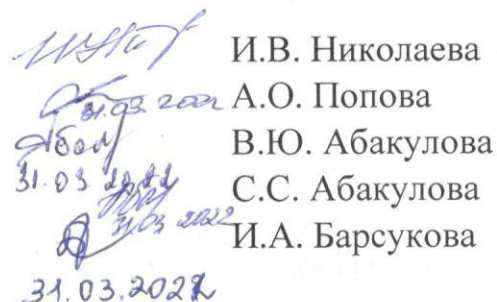 И.В. Николаева
31.03.2022 А.О. Попова
В.Ю. Абакулова
31.03.2022
С.С. Абакулова
31.03.2022 И.А. Барсукова
31.03.2022